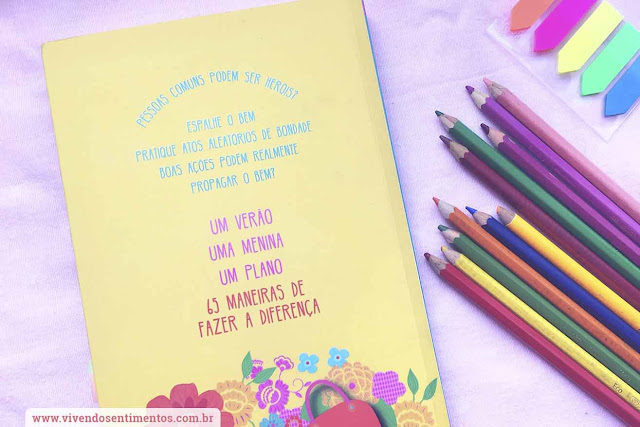 PESSOAS COMUNS PODEM SER HERÓIS?
ESPALHE O BEM
PRATIQUE ATOS ALEATÓRIOS DE BONDADE
BOAS AÇÕES PODEM REALMENTE
PROPAGAR O BEM?
UM VERÃO
UMA MENINA
UM PLANO
65 MANEIRAS DE
FAZER A DIFERENÇA
www.vivendosentimentos.com.br